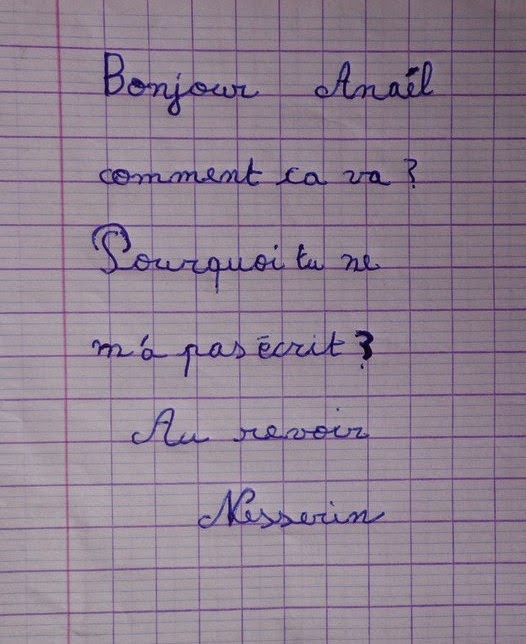 Bonjour Anaël
comment ca va ?
Pourquoi tu ne
m'a pas écrit ?
Au revoir
Nesserin